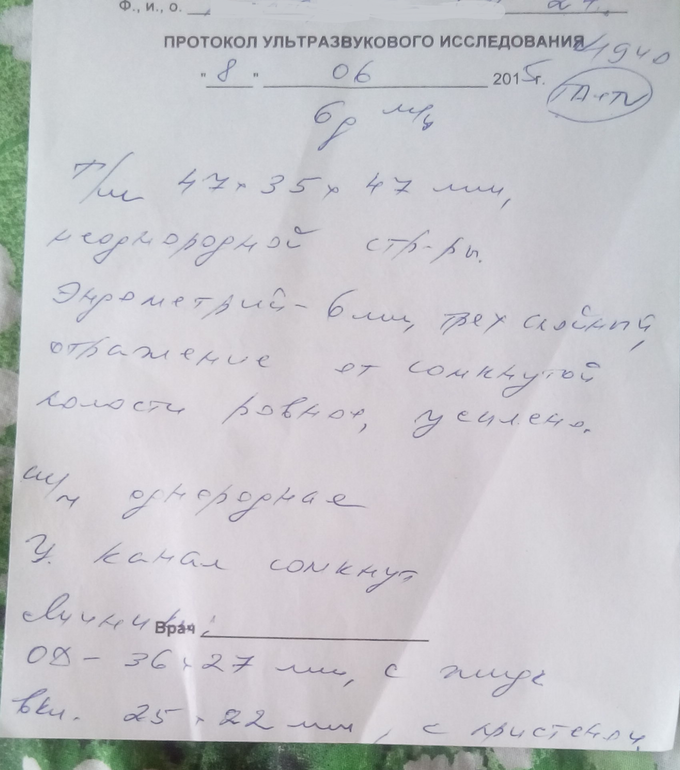 Ф., и., о.
ПРОТОКОЛ УЛЬТРАЗВУКОВОГО ИССЛЕДОВАНИЯ
" 8 " 06 2015г.
6д м/ц
Т/м 47 х 35 х 47 мм,
неоднородной стр-ры.
Эндометрий - 6 мм, трех слойный,
отражение от сомкнутой
полости ровное, усилено.
ш/м однородная
Ц. канал сомкнут
Яичники:
Врач
ОД - 36 х 27 мм, с жидк
вкл. 25 х 22 мм, с пристеноч.